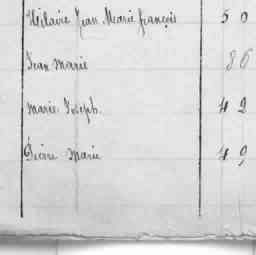 Hilaire Jean Marie françois 50
Jean Marie 86
Marie Joseph. 42
Pierre Marie 49